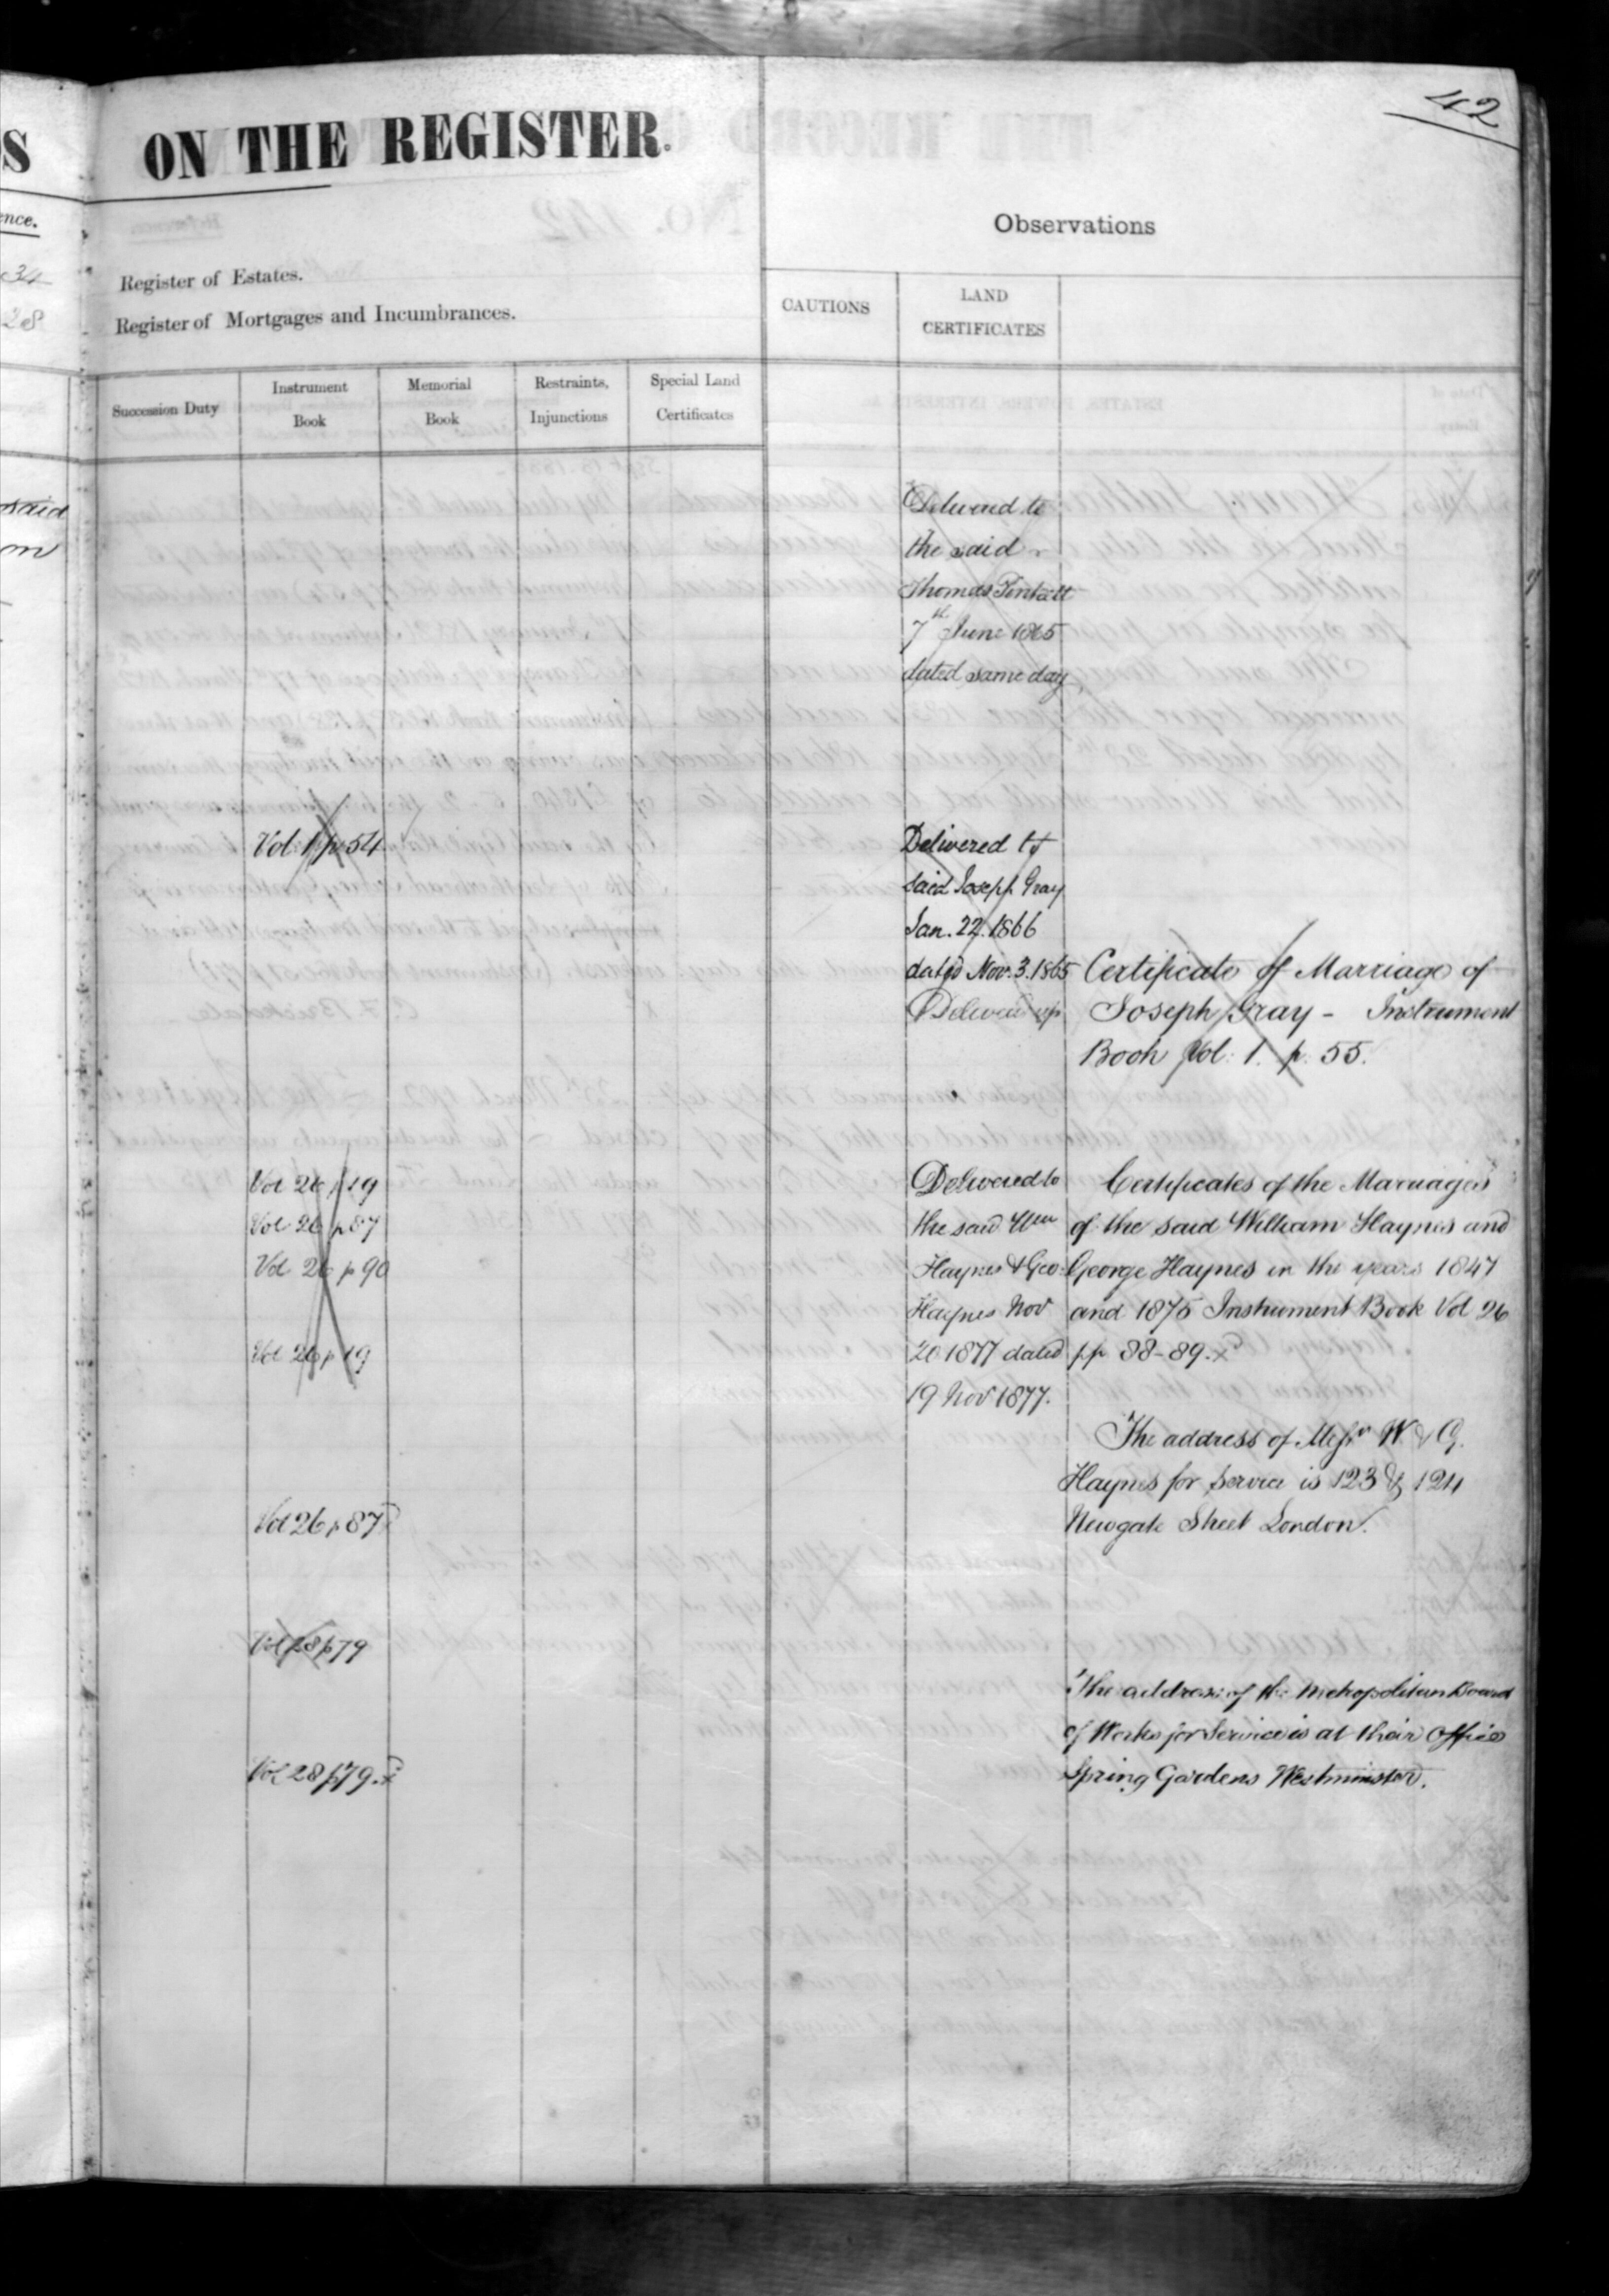 42
S
ON THE REGISTER.
ence.
Observations
34
28
Register of Estates.
Register of Mortgages and Incumbrances.
CAUTIONS
LAND
CERTIFICATES
Succession Duty
Instrument
Book
Memorial
Book
Restraints,
Injunctions
Special Land
Certificates
said
on
Delivered to
the said
Thomas
7th June 1865
dated same day
Vol. 1 p. 54
Delivered to
said Joseph Gray
Jan. 22. 1866
dated Nov. 3. 1865
Delivered up
Certificate of Marriage of
Joseph Gray - Instrument
Book Vol: 1. p. 55.
Vol 26 p 19
Vol 26 p 87
Vol 26 p 90
Vol 26 p 19
Delivered to
the said Wm
Haynes & Geo:
Haynes Nov
20 1877 dated
19 Nov 1877.
Certificates of the Marriages
of the said William Haynes and
George Haynes in the years 1847
and 1875 Instrument Book Vol 26
pp 88-89.x
The address of Messrs W & G.
Haynes for service is 123 & 124
Newgate Street London.
Vol 26 p 87
Vol 28 p 79
The address of the Metropolitan Board
of Works for Service is at their Office
Spring Gardens Westminster.
Vol 28 p 79.x